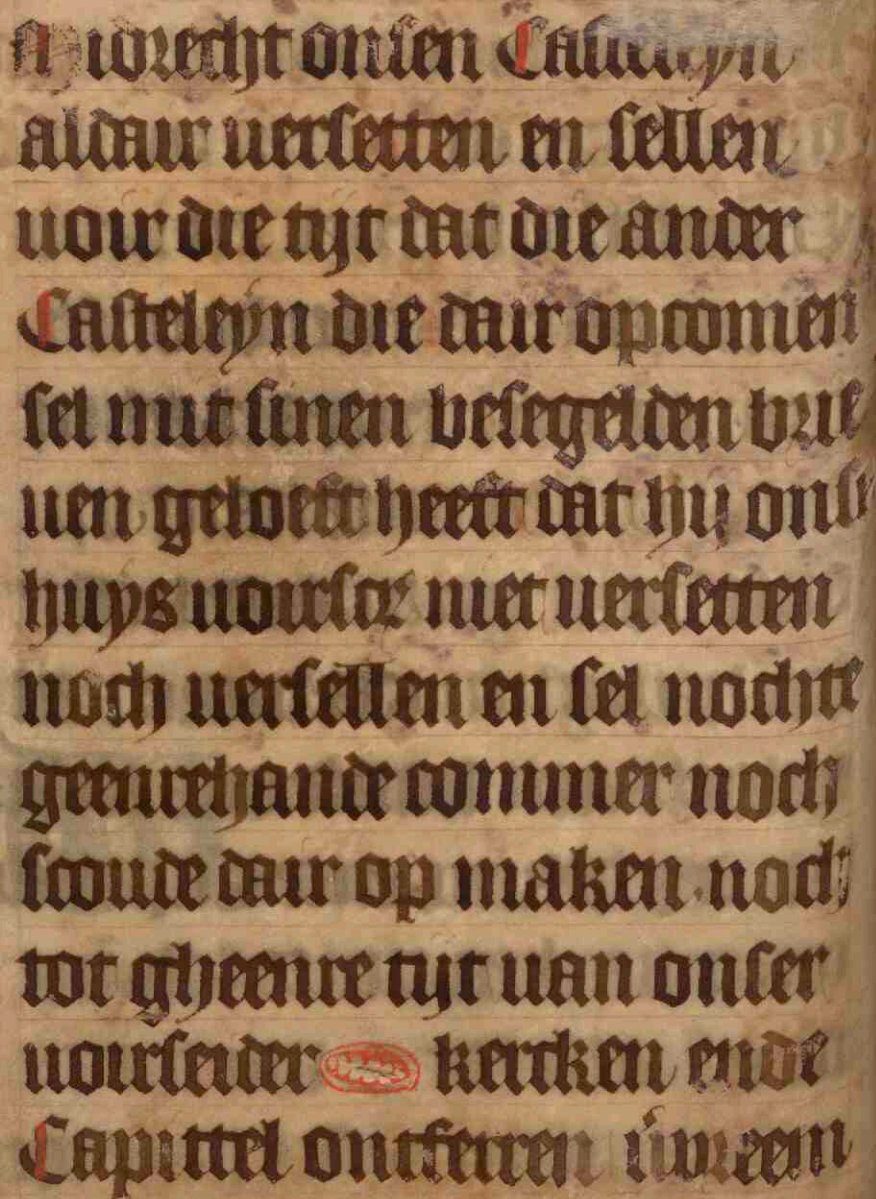 Miidrecht onsen Casteleyn
aldair versetten en sellen
voir die tijt dat die ander
Casteleyn die dair op comen
sel mit sinen besegelden brie
uen geloeft heeft dat hij onse
huys voirscr niet versetten
noch versellen en sel nochte
geenrehande commer noch
scoude dair op maken noch
tot gheenre tijt van onser
voirseider kercken ende
Capittel ontferren